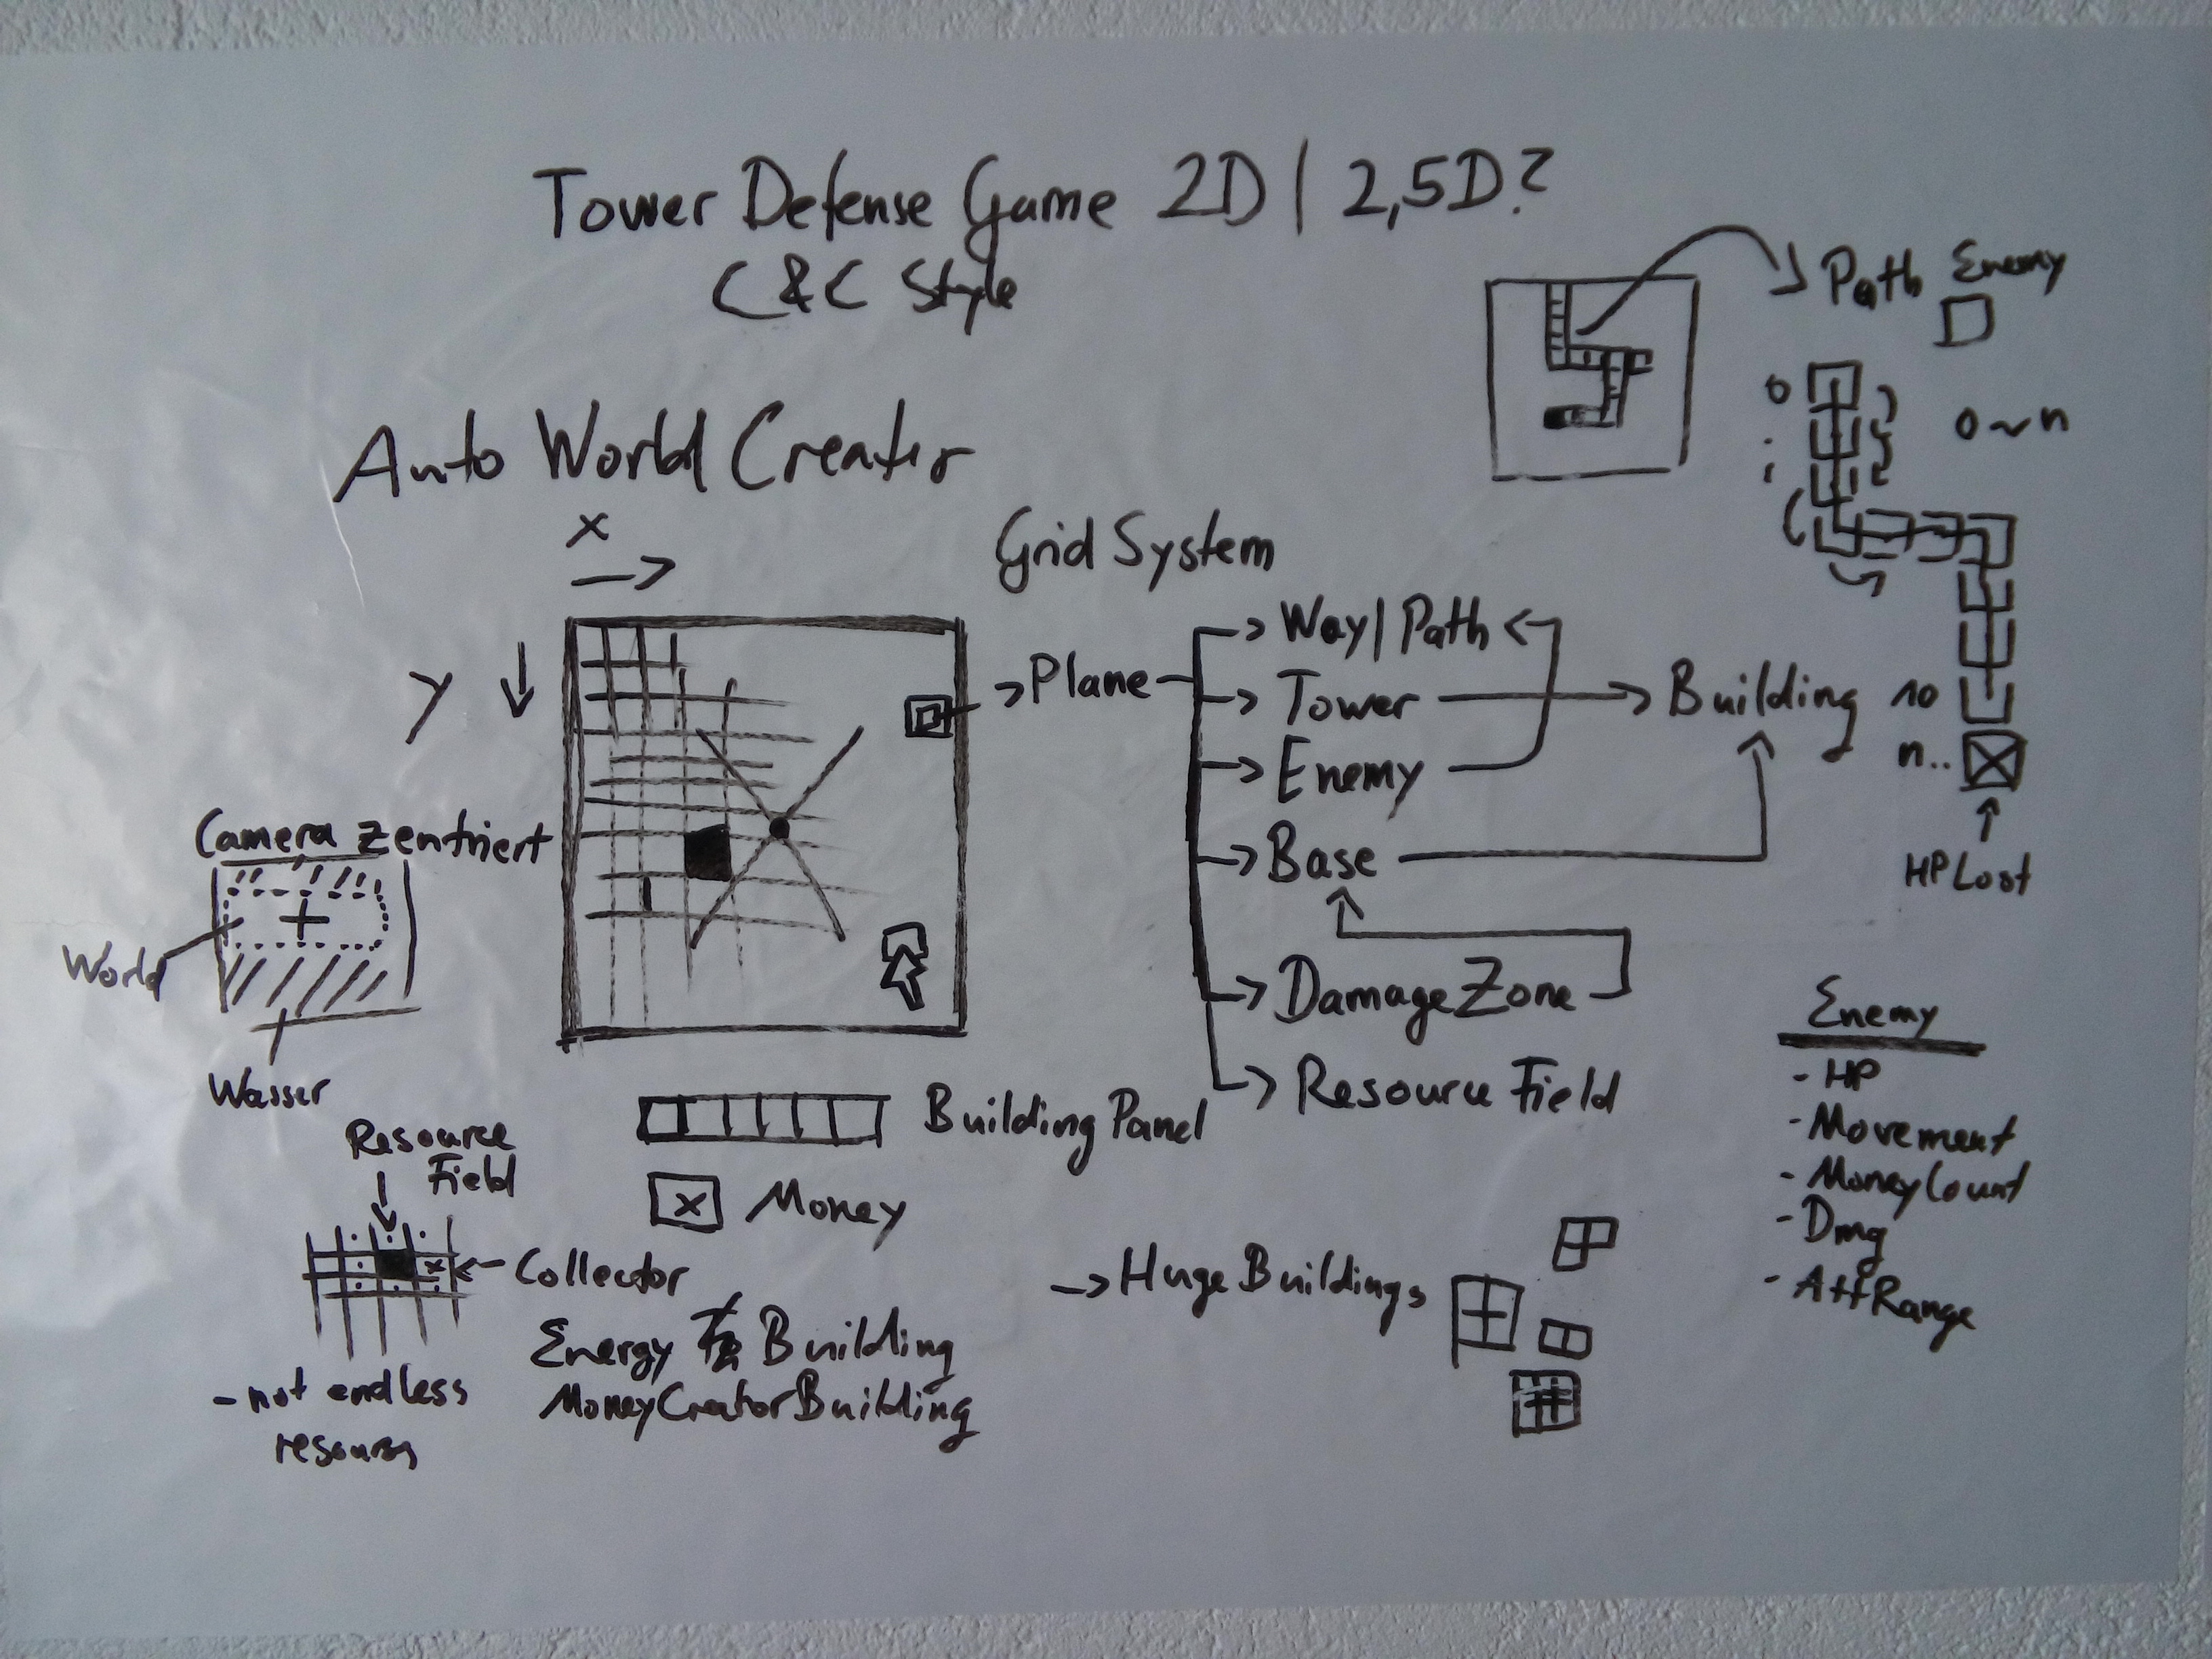 Tower Defense Game 2D | 2,5D?
C & C Style
Path Enemy
Auto World Creator
0
0 ~ n
x
Grid System
y
Plane
Way | Path
Tower
Enemy
Base
Damage Zone
Resource Field
Building
10
n..
HP Lost
Camera zentriert
World
Wasser
Building Panel
Money
Resource
Field
Collector
Energy Building
MoneyCreatorBuilding
- not endless
Huge Buildings
Enemy
- HP
- Movement
- MoneyCount
- Dmg
- AttRange